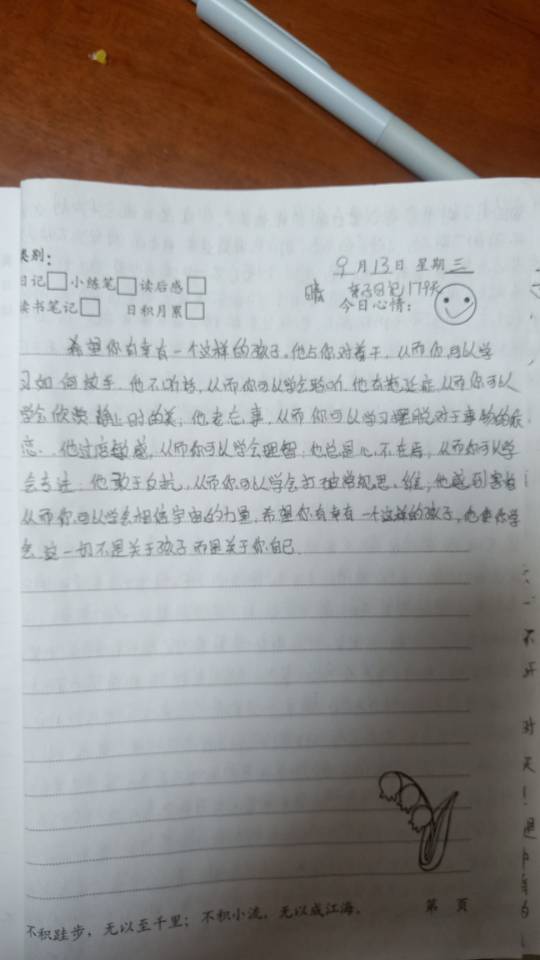 类别：
日记 小练笔 读后感
读书笔记 日积月累
9月13日 星期三
晴 第3日记179天
今日心情：
希望你有幸有一个这样的孩子，他与你对着干，从而你可以学
习如何放手，他不听话，从而你可以学会聆听，他有拖延症，从而你可以
学会欣赏静止时的美，他老忘事，从而你可以学习摆脱对于事物的依
恋，他过度敏感，从而你可以学会理智，他总是心不在焉，从而你可以学
会专注，他敢于反抗，从而你可以学会打破常规思维，他感到害怕
从而你可以学会相信宇宙的力量，希望你有幸有一个这样的孩子，他使你学
会这一切不是关于孩子而是关于你自己
不积跬步，无以至千里；不积小流，无以成江海。 第 页
不
开
对
天！